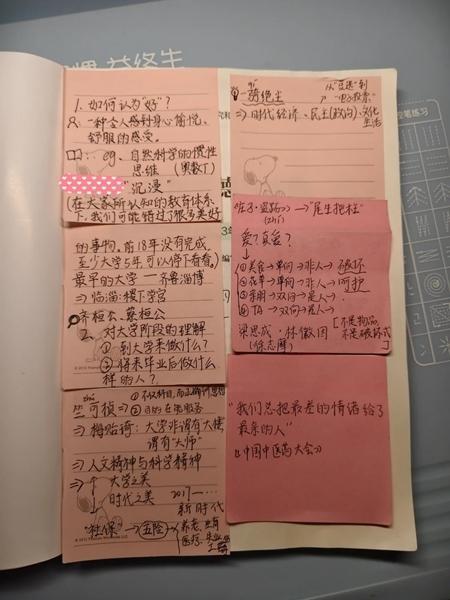 1. 如何认为“好”?
一种令人感到身心愉悦、
舒服的感受。
eg. 自然科学的惯性
思维 (奥数丁)
“沉浸”
(在大家所认知的教育体系
下,我们可能错过了很多美好
的事物。前18年没有完成,
至少大学5年可以停下看看。)
最早的大学——齐鲁淄博
⇒临淄·稷下学宫
齐桓公、蔡桓公
2. 对大学阶段的理解
① 到大学来做什么?
② 将来毕业后做什么
样的人?
zhú
竺可桢⇒
⇒梅贻琦:大学非谓有大楼
谓有“大师”
⇒人文精神与科学精神
⇒大学之美
时代之美
2017——…
新时代
“社保”→五险
养老、生育
医疗、失业
工伤
一骑绝尘
⇒时代经济、民主(政治)、文化
生活
→“尾生抱柱”
爱?真爱?
↓
①美食→单向→非人→破坏
②花草→单向→非人→呵护
③亲朋→双向→是人→
④TA→双向→是人→
梁思成·林徽因
(徐志摩)
[不是物品,
不是破坏式]
“我们总把最差的情绪给了
最亲的人”
《中国中医药大会》